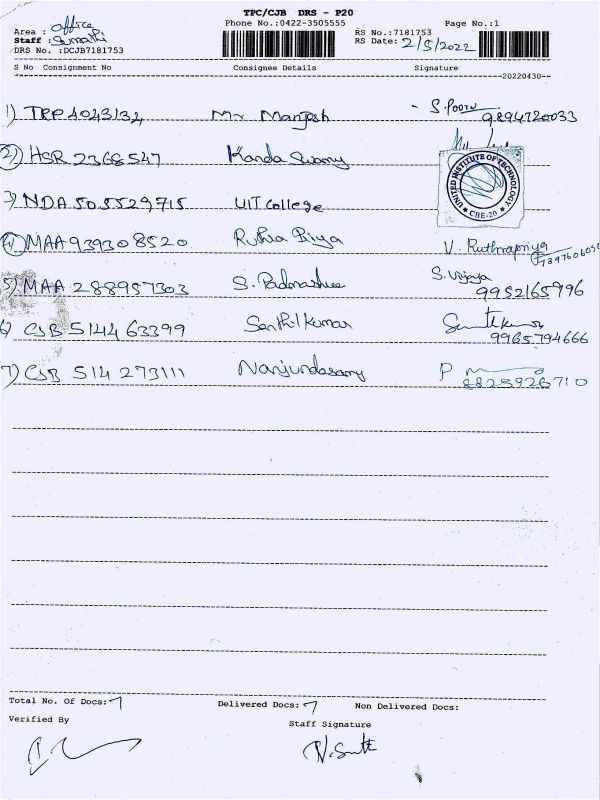 TPC/CJB DRS - P20
Phone No.:0422-3505555
Page No.:1
Area : office
Staff : Sumathi
DRS No. :DCJB7181753
RS No.:7181753
RS Date: 2/5/2022
S No Consignment No Consignee Details Signature
--20220430--
1) TRP 4043132 Mr Manjesh - S. 9894720033
2) HSR 2368547 Kanda Swamy
3) NDA 505529715 UIT College
UNITED INSTITUTE OF TECHNOLOGY
★ CBE-20 ★
4) MAA 939308520 Ruthra Priya V. Ruthrapriya
5) MAA 288957303 S. Padmashree S. Vijaya
9952165996
6) CJB 514463399 Senthil Kumar Senthilkumar
9965794666
7) CJB 514 273111 Nanjundasamy P
8825926710
Total No. Of Docs: 7 Delivered Docs: 7 Non Delivered Docs:
Verified By
Staff Signature